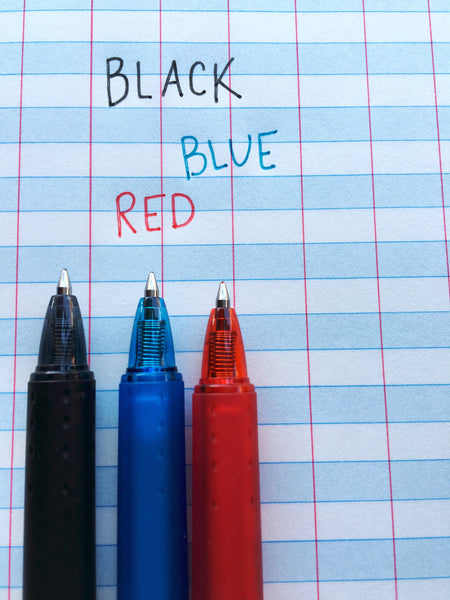 BLACK
BLUE
RED